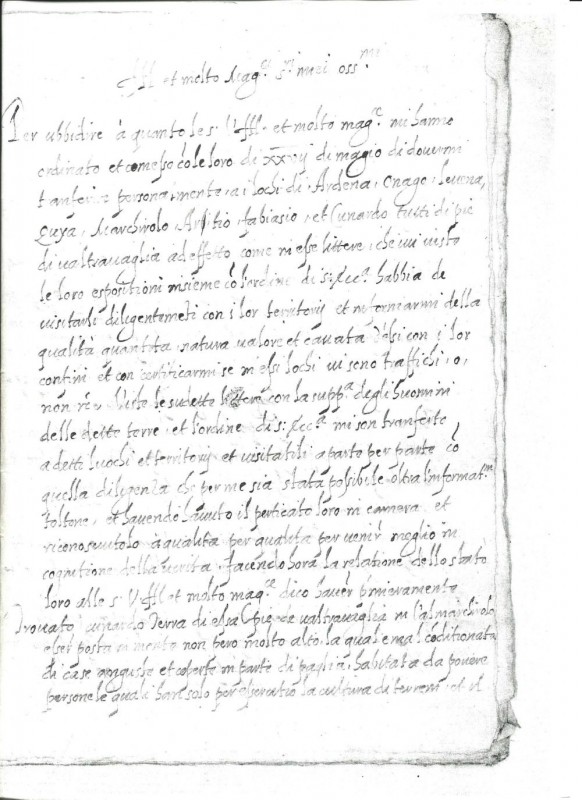 Ill et molto Mag.ci S.ri miei oss.mi
Per ubbidire à quanto le S. V Ill. et molto mag.ce mi hanno
ordinato et comesso cõ le loro di xxvij di magio di dovermi
tranferire personalmente a i lochi di Ardena, Cnago, Levena,
Marchirolo, Arbitio, fabiasio, et Cunardo tutti di pie
di valtravaglia ad effetto come in esse littere, che in visto
le loro espositioni insieme cõ l'ordine di S. Ecc.a habbia de
visitarli diligentemeti con i lor territorij et informarmi della
qualità quantita, natura valore et cavata d'essi con i lor
confini et con certificarmi se in essi lochi vi sono traffichi, o,
non etc. Visto le sudette littere con la supp.ca degli huomini
delle dette terre et l'ordine di S. Ecc.a mi son tranferto
a detti luochi et territorij et visitatili a parte per parte cõ
quella diligenza che per me sia stata possibile oltra l'informat.ni
toltone, et havendo havuto il perticato loro in camera et
riconosciutolo à qualità per qualita per venir meglio in
cognitione della verita, facendo hora la relatione dello stato
loro alle S. V Ill. et molto mag.ce dico haver primieramente
trovato Cunardo Terra di essa Pie de valtravaglia in l'almarchirolo
esser posta in monte non pero molto alto la qual e mal cõditionata
di case anguste et coperte in parte di paglia habitata da povere
persone le quali han solo per esercitio la cultura di terreni et il